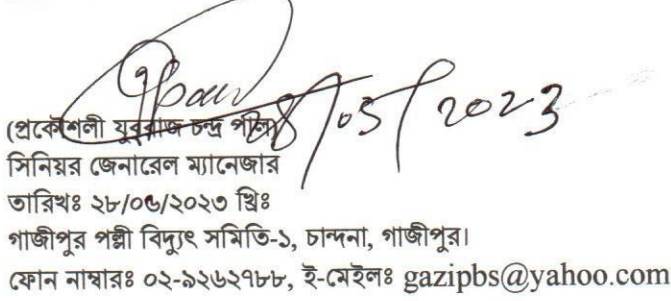 28/05/2023
(প্রকৌশলী যুবরাজ চন্দ্র পাল)
সিনিয়র জেনারেল ম্যানেজার
তারিখঃ ২৮/০৫/২০২৩ খ্রিঃ
গাজীপুর পল্লী বিদ্যুৎ সমিতি-১, চান্দনা, গাজীপুর।
ফোন নাম্বারঃ ০২-৯২৬২৭৮৮, ই-মেইলঃ gazipbs@yahoo.com